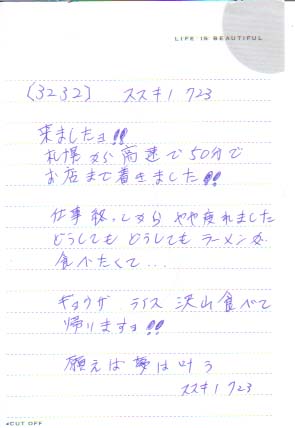 LIFE IS BEAUTIFUL
[3232] ススキノ 723
来ましたョ!!
札幌から高速で50分で
お店まで着きました!!
仕事終、しから やや疲れました
どうしてもどうしてもラーメンが
食べたくて...
ギョウザ ライス 沢山食べて
帰りますョ!!
願えば夢は叶う
ススキノ 723
◂CUT OFF